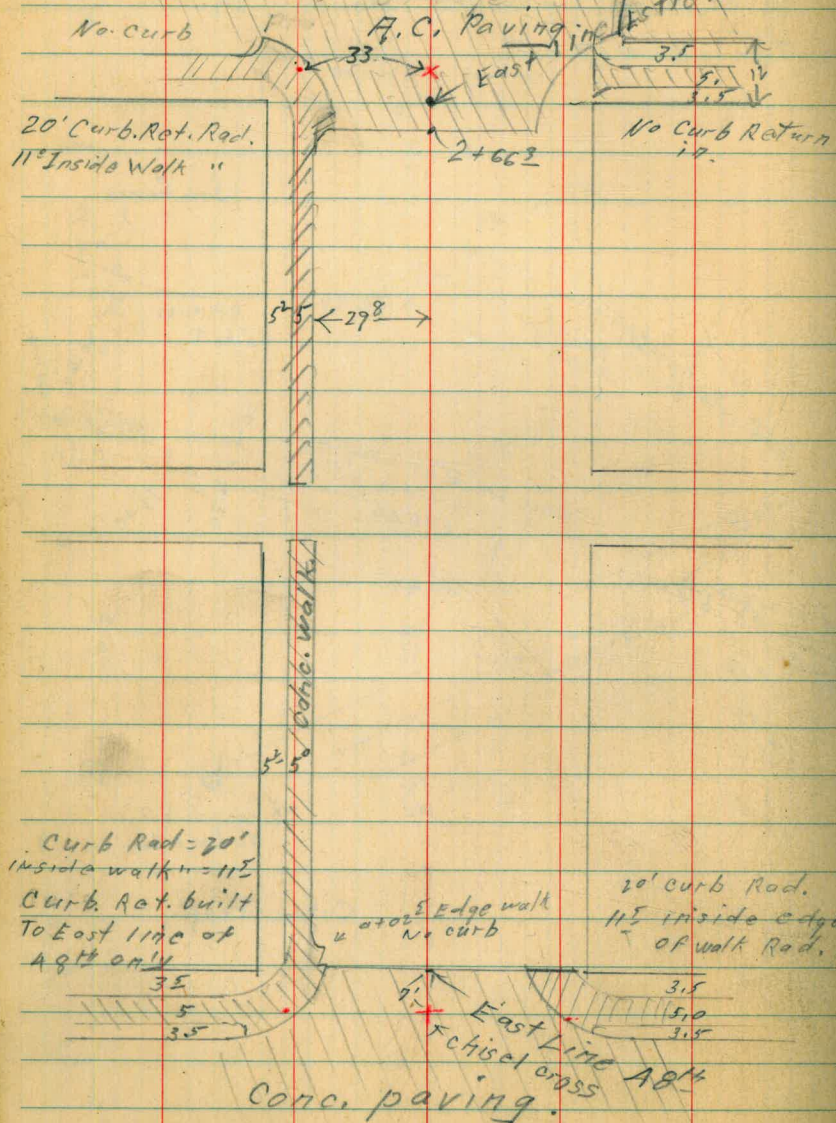 No. Curb
A.C. Paving in
33
East
3.5
5.
3.5
12
20' Curb. Ret. Rad.
11⁵ Inside Walk "
No Curb Return
in.
2+66³
5² 5
29⁸
Conc. walk
5² 5⁰
Curb Rad = 20'
inside walk " = 11⁵
Curb. Ret. built
To East line of
48th only
0+02⁵ Edge walk
No curb
20' curb Rad.
11⁵ inside edge
of walk Rad.
3⁵
5
3.5
7'
East Line 48th
chisel cross
3.5
5.0
3.5
Conc. paving.